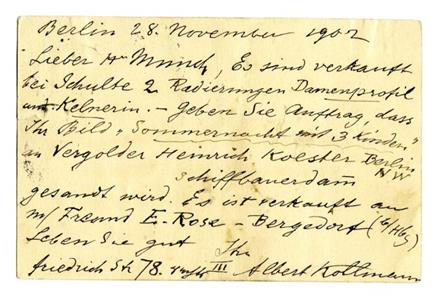 Berlin 28. November 1902
Lieber Hr Munch, Es sind verkauft
bei Schulte 2 Radierungen Damenprofil
und Kelnerin. – Geben Sie Auftrag, dass
Ihr Bild „Sommernacht mit 3 Kindern"
an Vergolder Heinrich Koester Berlin
NW
Schiffbauerdam
gesandt wird. Es ist verkauft an
m/ Freund E. Rose – Bergedorf (b/Hbg)
Leben Sie gut Ihr
friedrich Str 78. III Albert Kollmann